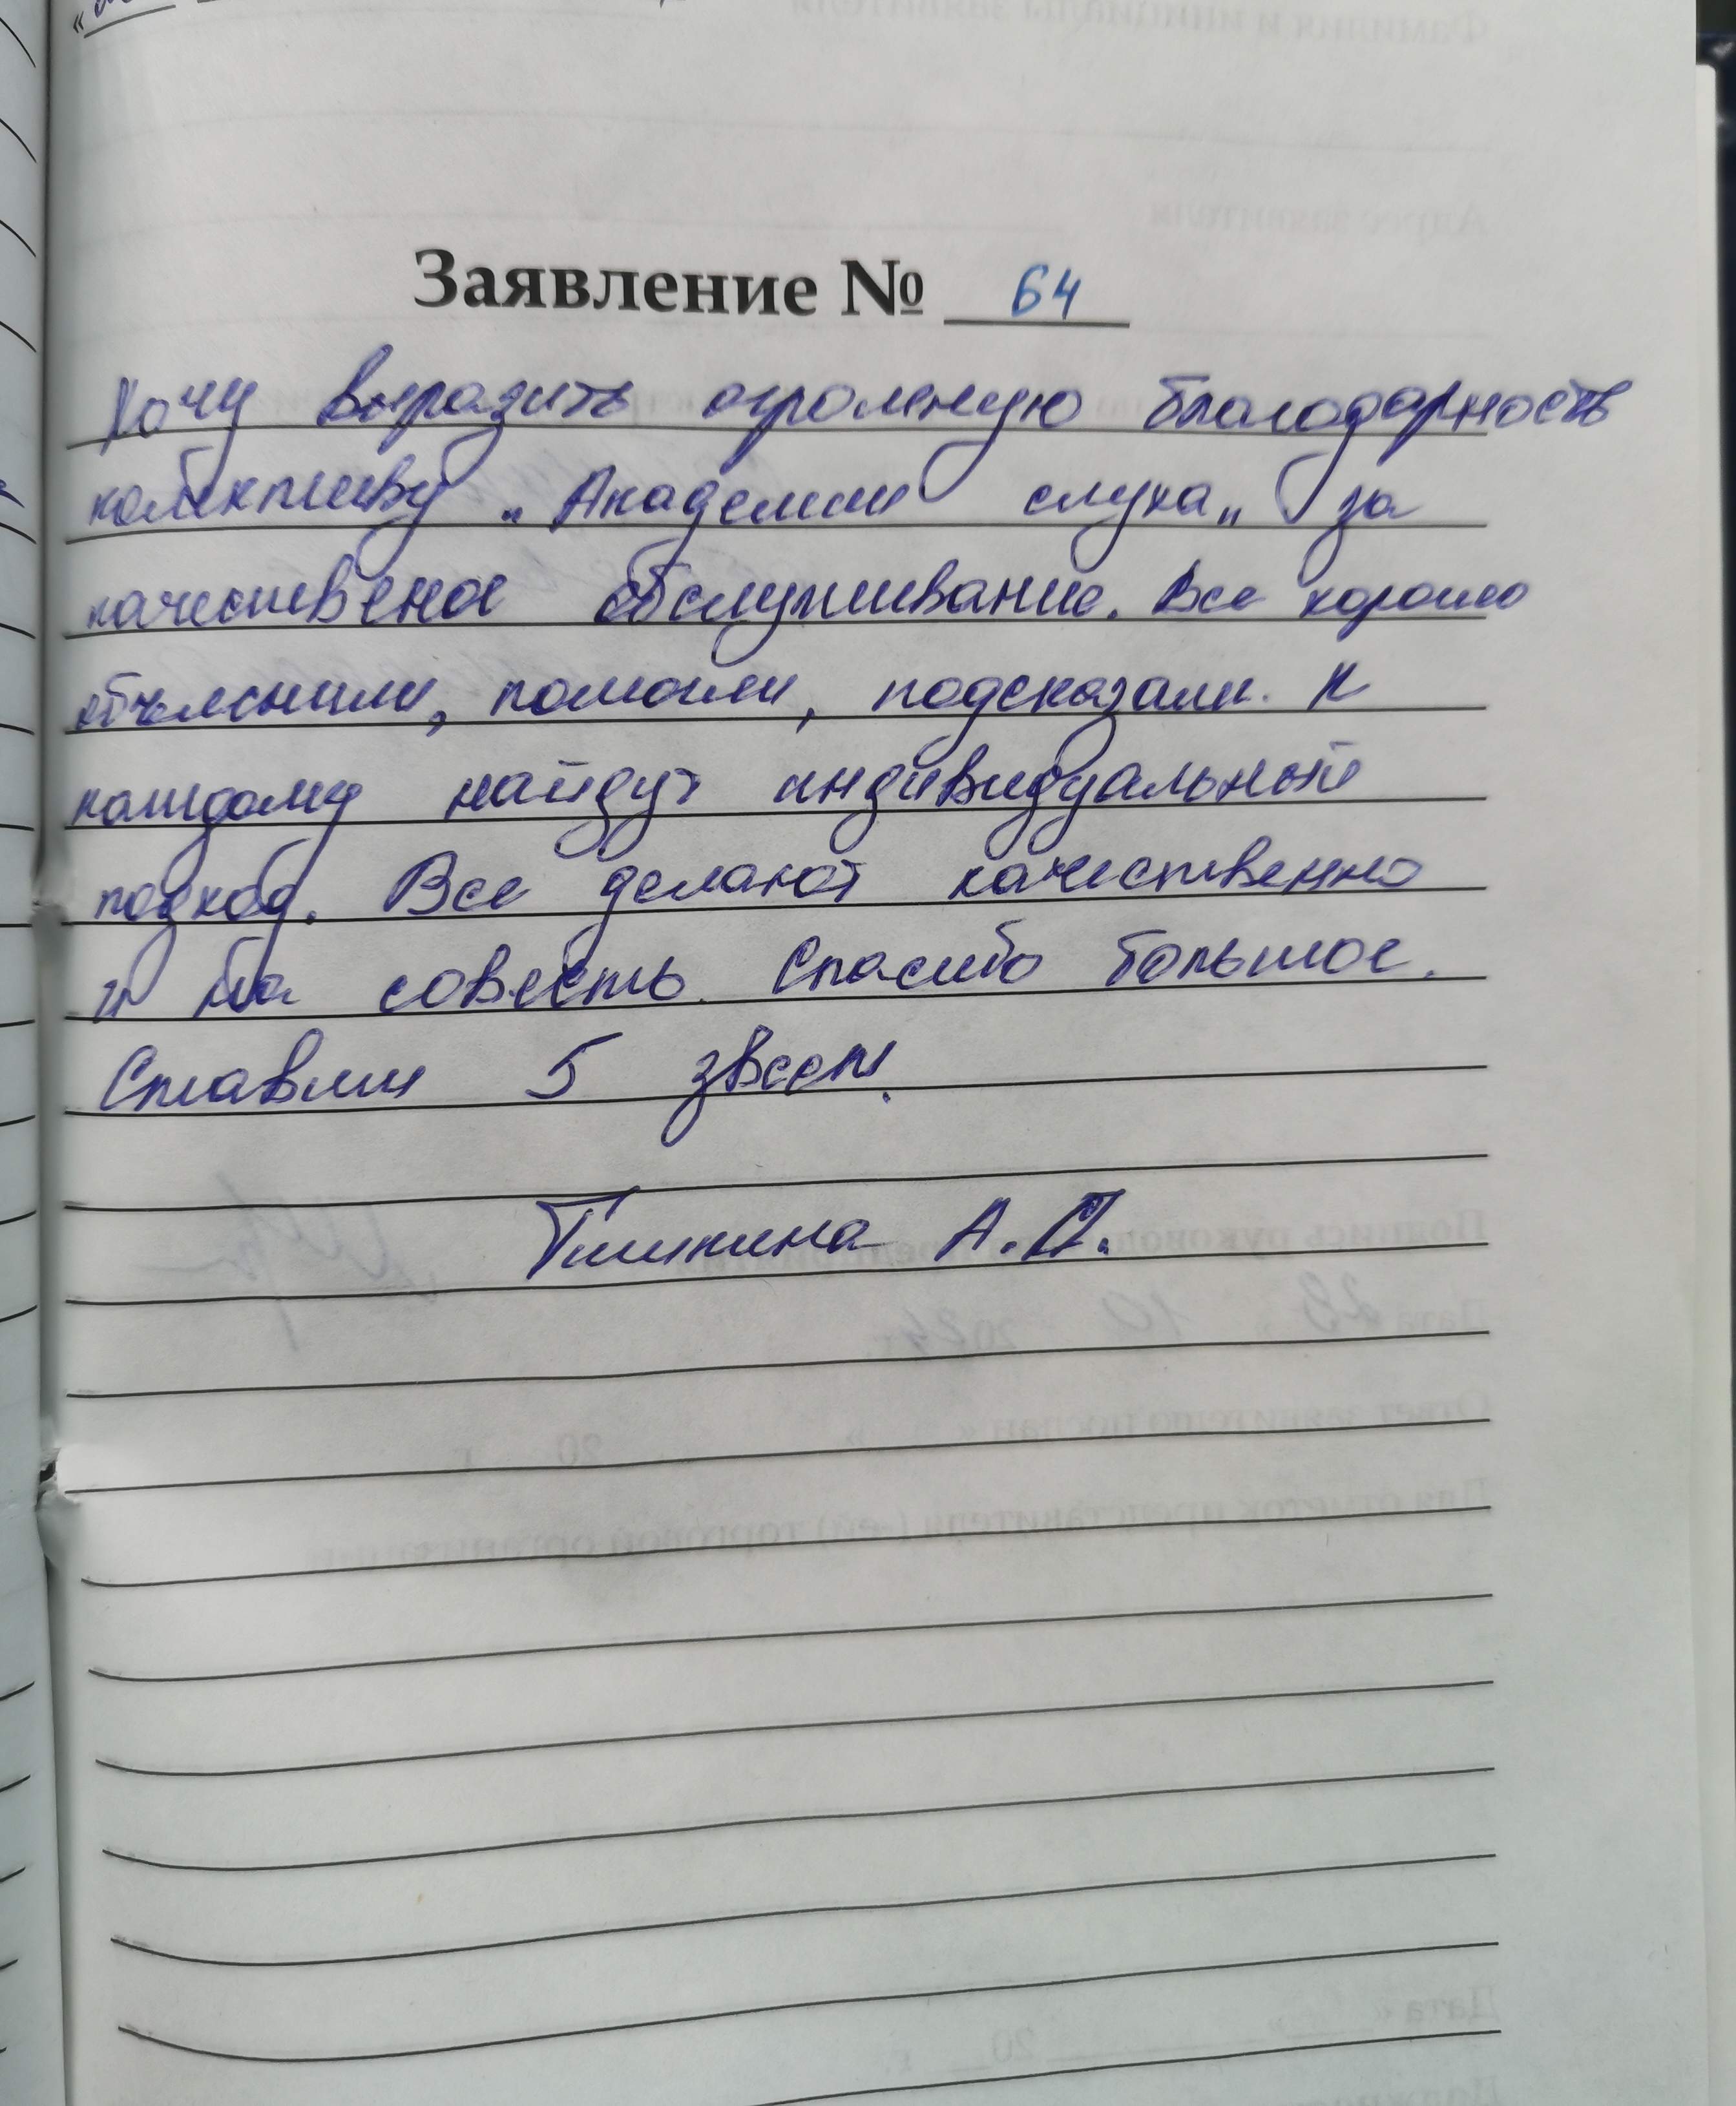 Заявление № 64
Хочу выразить огромную благодарность
колективу „Академии слуха„ за
качественое обслуживание. Все хорошо
объяснили, помогли, подсказали. К
каждому найдут индивидуальный
подход. Все делают качественно
и на совесть. Спасибо большое.
Ставлю 5 звезд.
А.